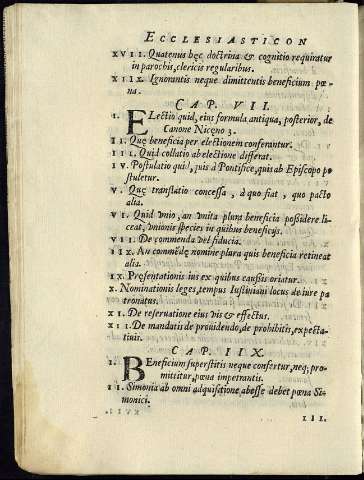 ECCLESIASTICON
XVII. Quatenus hęc doctrina & cognitio requiratur
in parochis, clericis regularibus.
XIIX. Ignorantis neque dimittentis beneficium pœ-
na.
CAP. VII.
I. ELectio quid, eius formula antiqua, posterior, de
Canone Nicęno 3.
II. Quę beneficia per electionem conferantur.
III. Quid collatio ab electione differat.
IV. Postulatio quid, quis à Pontifice, quis ab Episcopo po-
stuletur.
V. Quę translatio concessa, à quo fiat, quo pacto
alia.
VI. Quid vnio, an vnita plura beneficia poßidere li-
ceat, vnionis species in quibus beneficijs.
VII. De commenda vel fiducia.
IIX. An commẽdę nomine plura quis beneficia retineat
alia.
IX. Pręsentationis ius ex quibus caußis oriatur.
X. Nominationis leges, tempus Iustiniani locus de iure pa-
tronatus.
XI. De reseruatione eius vis & effectus.
XII. De mandatis de prouidendo, de prohibitis, expecta-
tiuis.
CAP. IIX.
I. BEneficium superstitis neque confertur, neq; pro-
mittitur, pœna impetrantis.
II. Simonia ab omni adquisitione abesse debet pœna Si-
monici.
III.